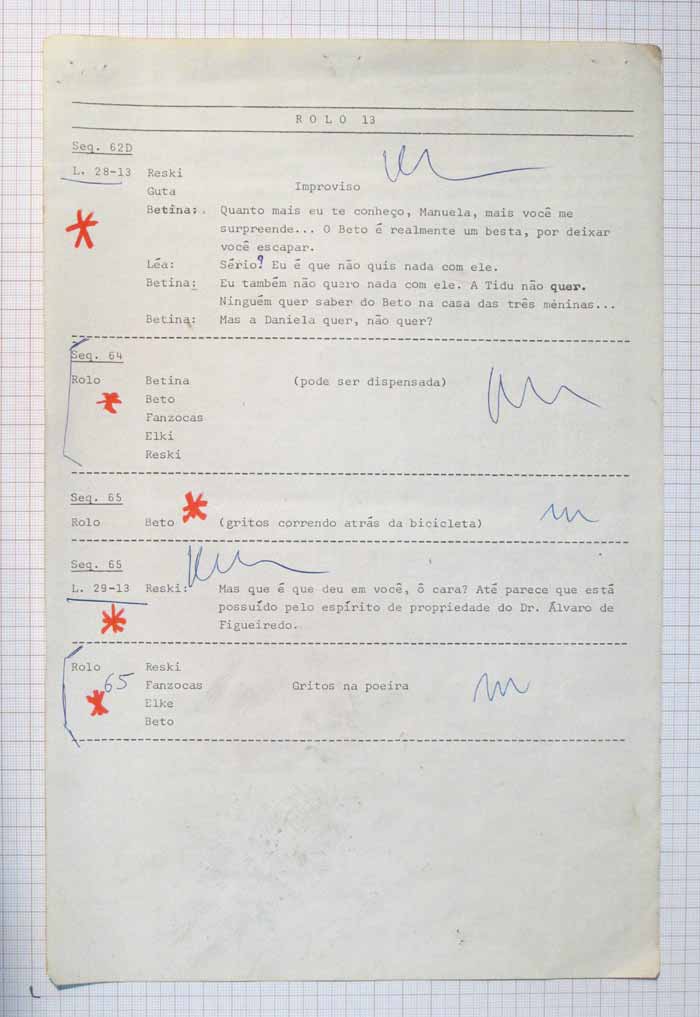 R O L O 13
Seq. 62D
L. 28-13 Reski
Guta Improviso
Betina: Quanto mais eu te conheço, Manuela, mais você me
surpreende... O Beto é realmente um besta, por deixar
você escapar.
Léa: Sério? Eu é que não quis nada com ele.
Betina: Eu também não quero nada com ele. A Tidu não quer.
Ninguém quer saber do Beto na casa das três meninas...
Betina: Mas a Daniela quer, não quer?
Seq. 64
Rolo Betina (pode ser dispensada)
Beto
Fanzocas
Elki
Reski
Seq. 65
Rolo Beto (gritos correndo atrás da bicicleta)
Seq. 65
L. 29-13 Reski: Mas que é que deu em você, ô cara? Até parece que está
possuído pelo espírito de propriedade do Dr. Álvaro de
Figueiredo.
Rolo Reski
65 Fanzocas Gritos na poeira
Elke
Beto